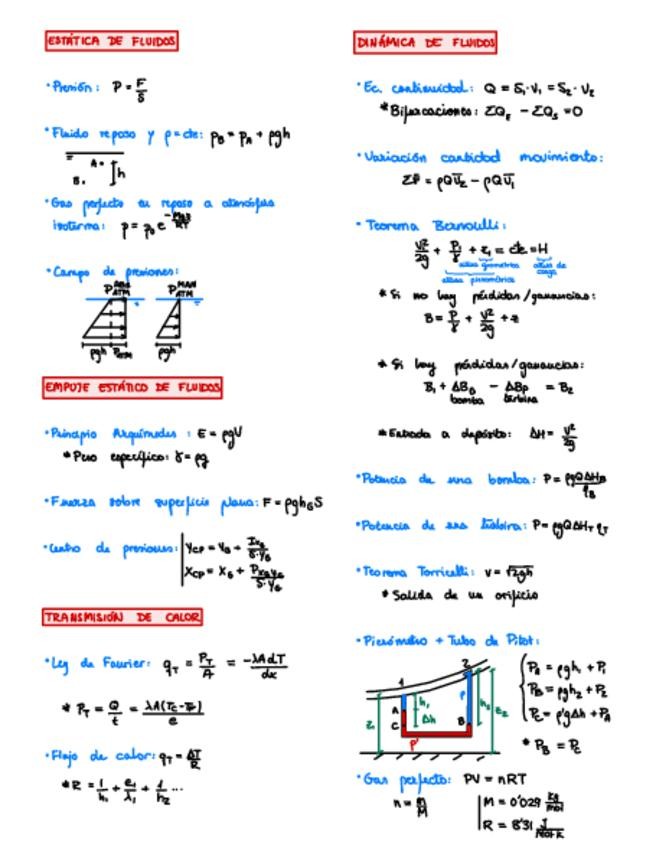 ESTÁTICA DE FLUIDOS
• Presión: P = F/S
• Fluido reposo y ρ = cte: P_B = P_A + ρgh
A.
B.
h
• Gas perfecto en reposo a atmósfera
isoterma: p = p₀ e
• Campo de presiones:
P ABS ATM
P MAN ATM
ρgh P_ATM
ρgh
EMPUJE ESTÁTICO DE FLUIDOS
• Principio Arquímedes: E = ρgV
* Peso específico: γ = ρg
• Fuerza sobre superficie plana: F = ρgh_G S
• Centro de presiones:
TRANSMISIÓN DE CALOR
• Ley de Fourier: q_T = P_T/A = -λAdT/dx
* P_T = Q/t
• Flujo de calor: q_T = ΔT/R
* R = 1/h₁ + e₁/λ₁ + 1/h₂ ...
DINÁMICA DE FLUIDOS
• Ec. continuidad: Q = S₁·V₁ = S₂·V₂
* Bifurcaciones: ΣQ_E − ΣQ_S = 0
• Variación cantidad movimiento:
ΣF̄ = ρQV̄₂ − ρQV̄₁
• Teorema Bernoulli:
V²/2g + P₁/γ + z₁ = cte = H
altura geométrica
altura de carga
altura piezométrica
* Si no hay pérdidas/ganancias:
B = P/γ + V²/2g + z
* Si hay pérdidas/ganancias:
B₁ + ΔB_B − ΔB_P = B₂
bomba turbina
* Entrada a depósito: ΔH = V²/2g
• Potencia de una bomba: P = ρgQΔH_B/η_B
• Potencia de una turbina: P = ρgQΔH_T η_T
• Teorema Torricelli: v = √2gh
* Salida de un orificio
• Piezómetro + Tubo de Pitot:
1
2
A
C
B
h₁
Δh
h₂
z₁
z₂
ρ
ρ'
P_A = ρgh₁ + P₁
P_B = ρgh₂ + P₂
P_C = ρ'gΔh + P_A
* P_B = P_C
• Gas perfecto: PV = nRT
n = m/M
M = 0'029 kg/mol
R = 8'31 J/mol·K